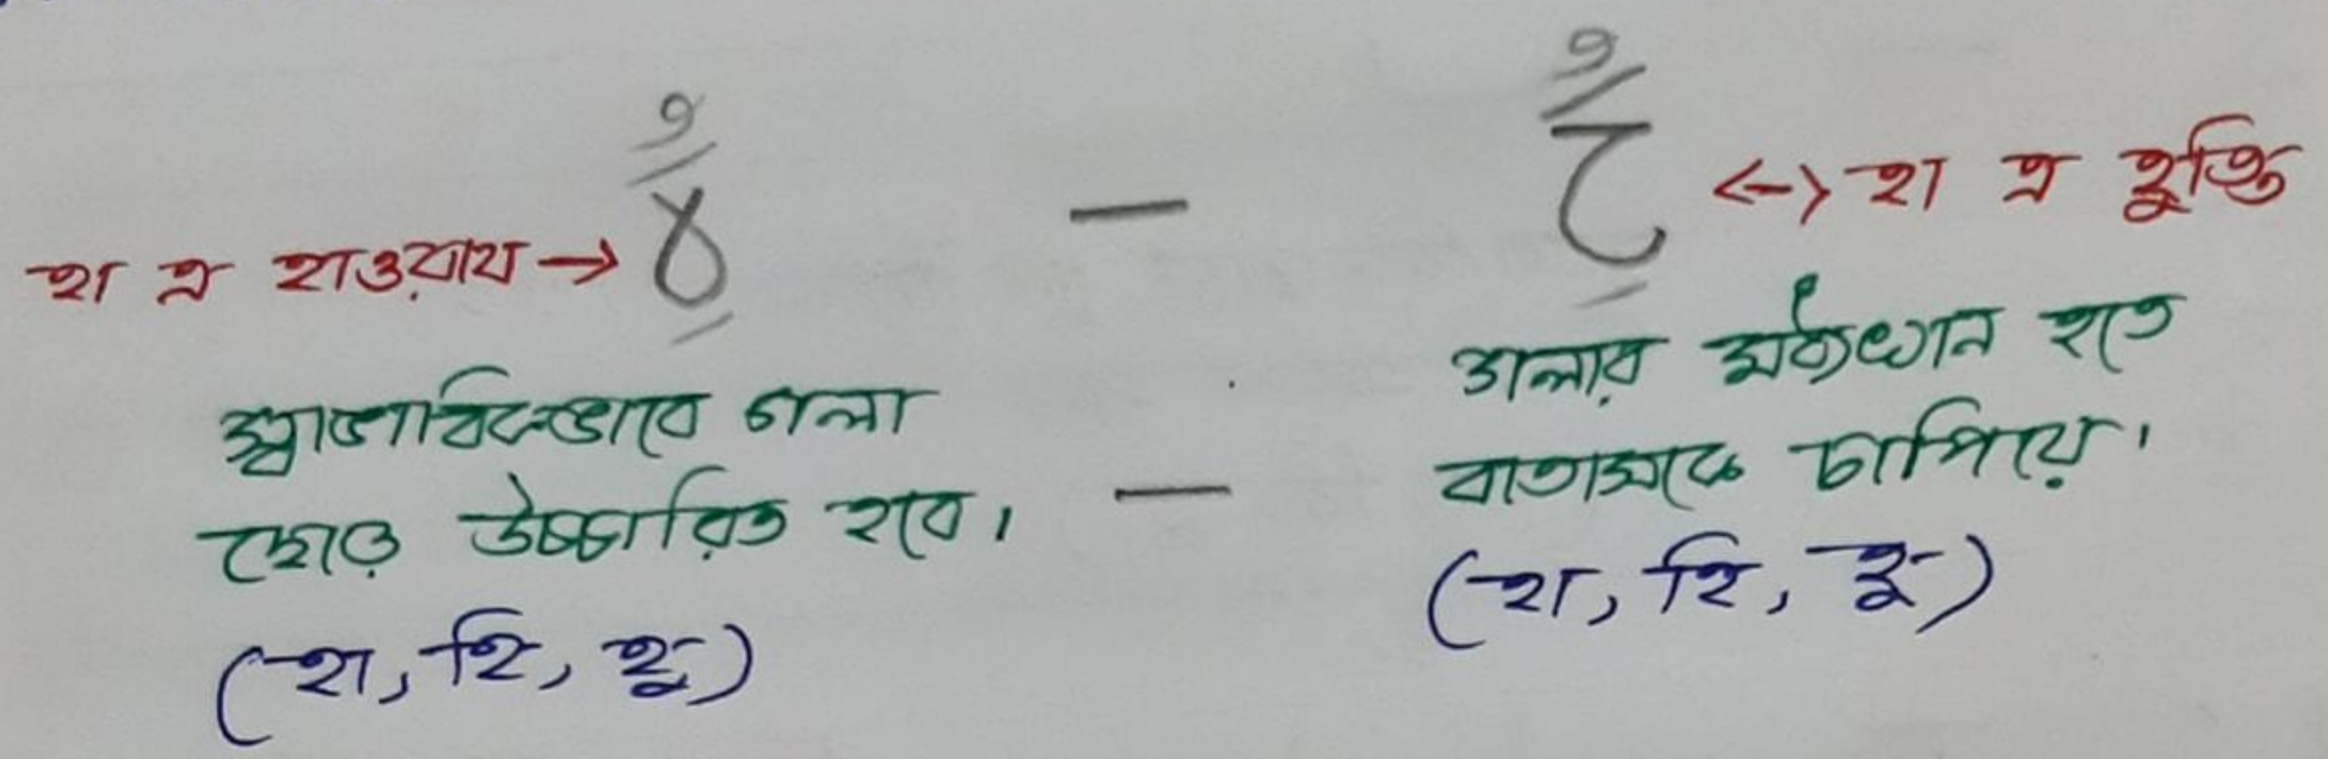 হা এ হাওয়ায → ه َ ِ ُ — ح َ ِ ُ <-> হা এ হুত্তি
স্বাভাবিকভাবে গলা
ছেড়ে উচ্চারিত হবে। —
(হা, হি, হু)
গলার মধ্যখান হতে
বাতাসকে চাপিয়ে।
(হা, হি, হু)